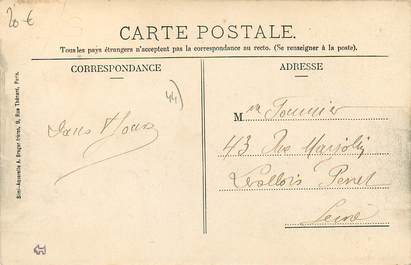 20 €
CARTE POSTALE.
Tous les pays étrangers n'acceptent pas la correspondance au recto. (Se renseigner à la poste).
CORRESPONDANCE
ADRESSE
44)
M
43 Rue Marjolin
Levallois Perret
Seine
Simi-Aquarelle A. Breger frères, 9, Rue Thénard, Paris.